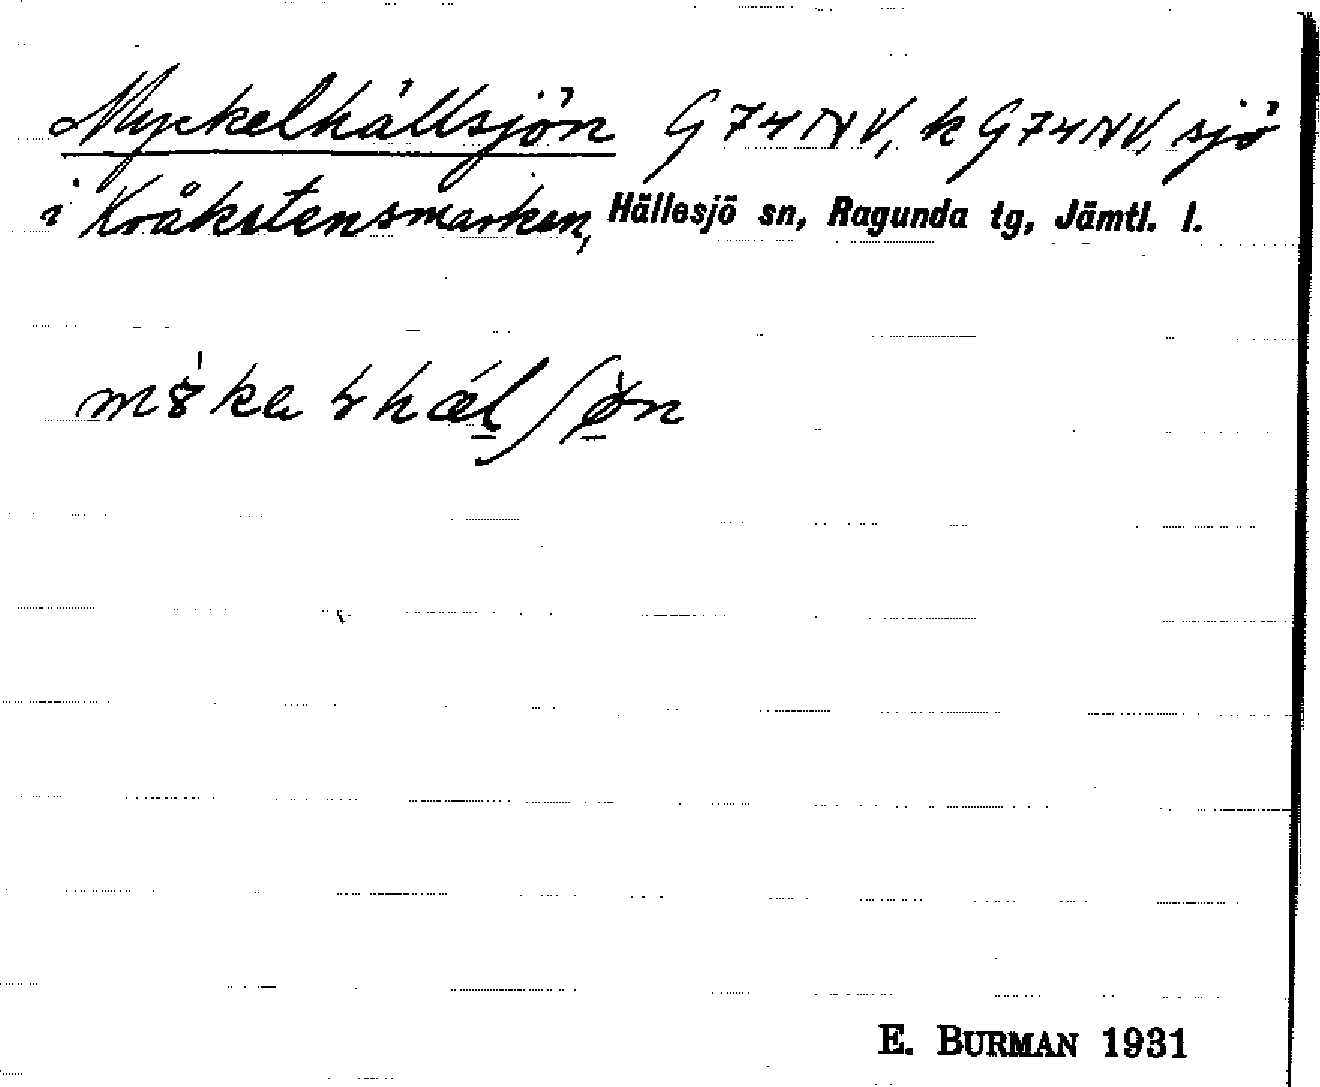 Myckelhällsjön G 74 NV, k G 74 NV, sjö
i Kråkstensmarken, Hällesjö sn, Ragunda tg, Jämtl. l.
E. BURMAN 1931